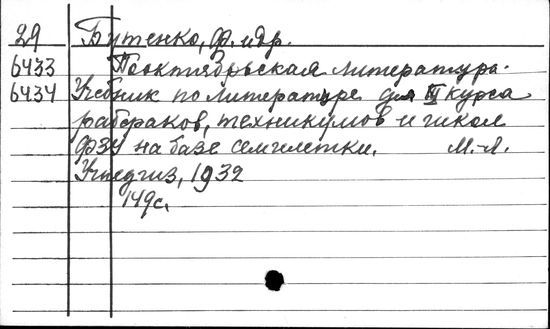 29 Бутенко, Ф. и др.
6433 Пооктябрьская литература.
6434 Учебник по литературе для III курса
рабфаков, техникумов и школ
ФЗУ на базе семилетки. М.-Л.
Учпедгиз, 1932
149с.